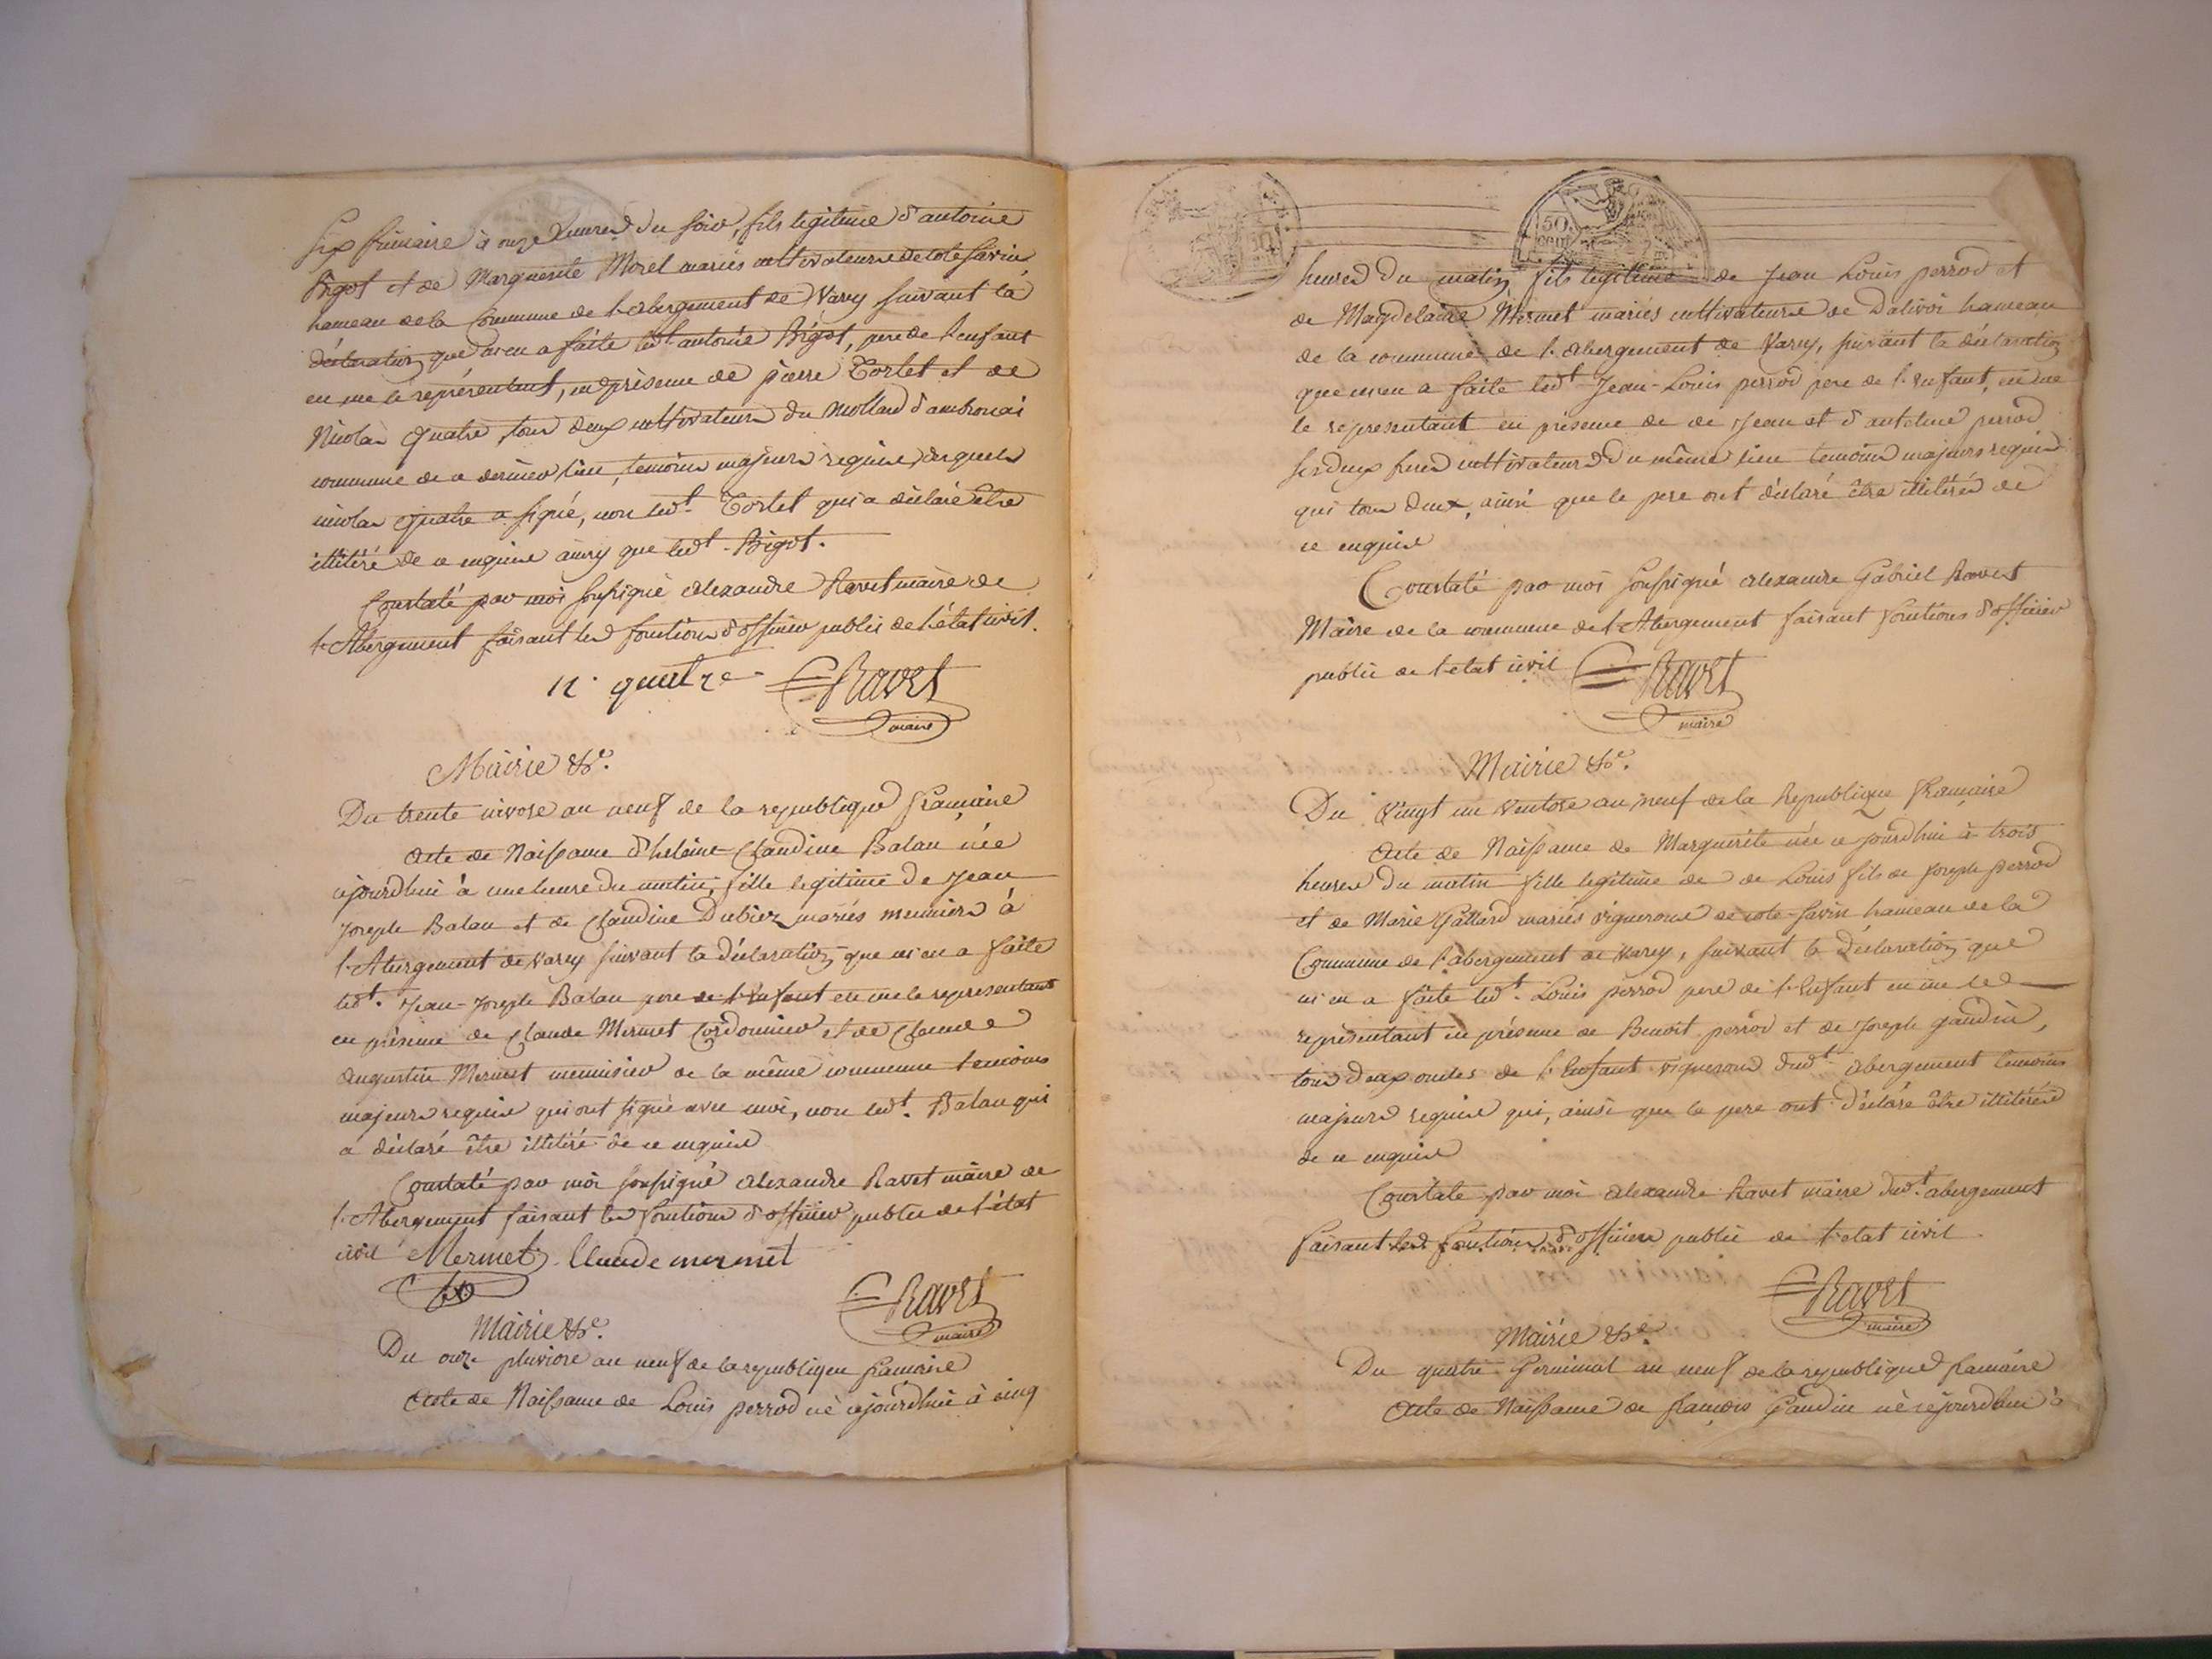 six frimaire à onze heures du soir, fils legitime d'antoine
Bigot et de Marguerite Morel mariés cultivateurs de cote Savin
hameau de la Commune de l'abergement de Varey suivant la
déclaration que m'en a faite ledt antoine Bigot, pere de l'enfant
en me le représentant, en présence de pierre Torlet et de
Nicolas quatre, tous deux cultivateurs du Mollard d'ambronai
commune de ce dernier lieu, temoins majeurs requis, desquels
nicolas quatre a signé, non ledt. Torlet qui a déclaré être
illitéré de ce enquis ainsy que ledt. Bigot.
Constaté par moi soussigné alexandre Ravet maire de
l'Abergement faisant les fonctions d'officier public de l'état civil.
n. quatre Ravet
maire
Mairie &c.
Du trente nivose an neuf de la republique francaise
Acte de Naissance d'helaine Claudine Balan née
cejourdhui à une heure du matin, fille legitime de Jean
Joseph Balan et de Claudine Dubiez mariés meuniers à
l'Abergement de Varey suivant la déclaration que m'en a faite
ledt. Jean-Joseph Balan pere de l'enfant en me le representant
en présence de Claude Mermet Cordonnier et de Claude
Augustin Mermet menuisier de la même commune temoins
majeurs requis qui ont signé avec moi, non ledt. Balan qui
a déclaré être illitéré de ce enquis
Constaté par moi soussigné alexandre Ravet maire de
l'Abergement faisant les fonctions d'officier public de l'état
civil Mermet. Claude mermet
Ravet
maire
Mairie &c.
Du onze pluviose an neuf de la republiqeu francaise
Acte de Naissance de Louis perrod né cejourdhui à cinq
50
cent
heures du matin fils legitime de Jean Louis perrod et
de Magdelaine Mermet mariés cultivateurs de Dalivoi hameau
de la commune de l'abergement de Varey, suivant la déclaration
que m'en a faite ledt Jean-Louis perrod pere de l'enfant, en me
le representant en présence de de Jean et d'antoine perrod
ses deux freres cultivateurs du même lieu temoins majeurs requis
qui tous deux, ainsi que le pere ont déclaré être illitérés de
ce enquis
Constaté par moi soussigné alexandre Gabriel Ravet
Maire de la commune de l'Abergement faisant fonctions d'officier
public de l'etat civil Ravet
maire
Mairie &c.
Du vingt un ventose an neuf de la Republique francaise
Acte de Naissance de Marguerite née ce jourdhui à trois
heures du matin fille legitime de de Louis fils de Joseph perrod
et de Marie Gallard mariés vignerons de cote-savin hameau de la
Commune de l'abergement de Varey, suivant la déclaration que
m'en a faite ledt. Louis perrod pere de l'enfant en me le
représentant en présence de Benoit perrod et de Joseph gaudin,
tous deux oncles de l'enfant vignerons dudt abergement temoins
majeurs requis qui, ainsi que le pere ont déclaré être illitérés
de ce enquis
Constaté par moi alexandre Ravet maire dudt. abergement
faisant les fonctions d'officier public de l'etat civil
Ravet
maire
Mairie &c.
Du quatre Germinal an neuf de la republique francaise
Acte de Naissance de françois Gaudin né cejourdhui à